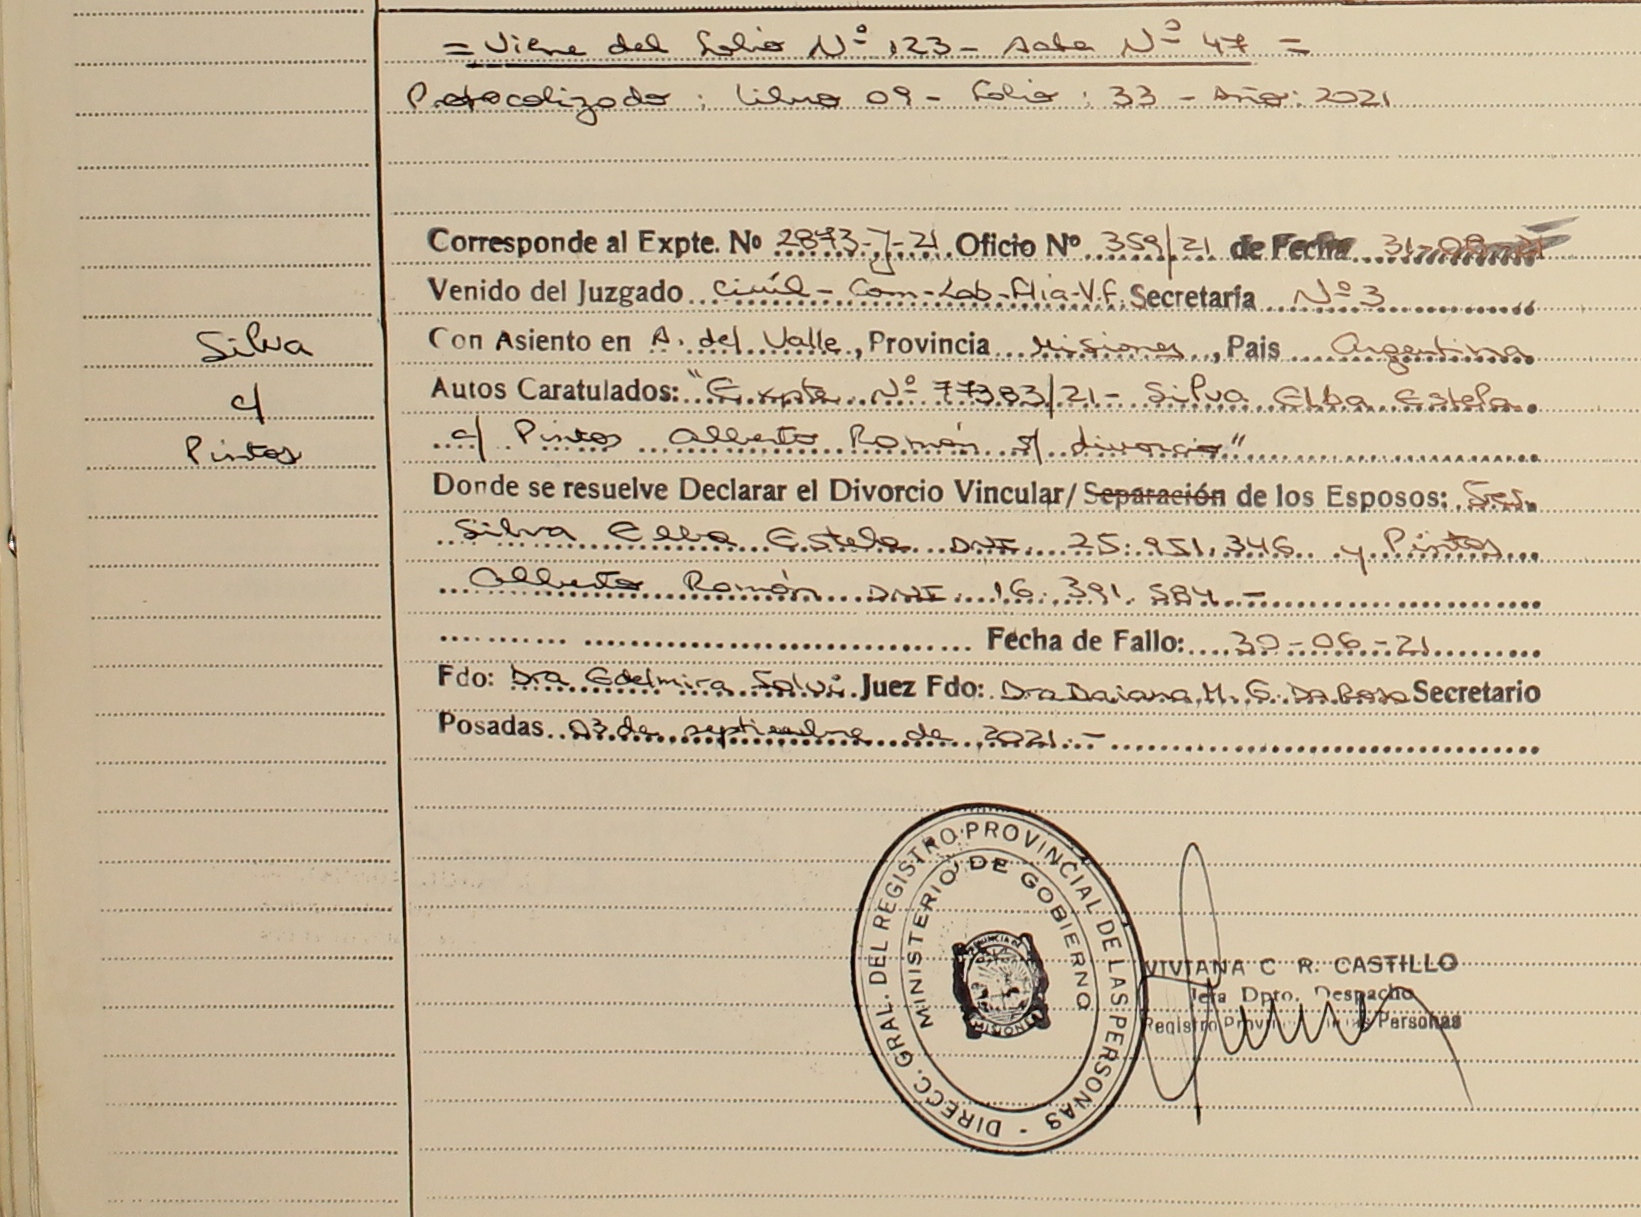 = Viene del folio Nº 123 - Acta Nº 47 =
Protocolizado: Libro 09 - folio: 33 - Año: 2021
Corresponde al Expte. Nº 2873-J-21 Oficio Nº 359/21 de Fecha 31-08-21
Venido del Juzgado Civil-Com-Lab-flia-V.f. Secretaría Nº 3
Silva
c/
Pintos
Con Asiento en A. del Valle, Provincia Misiones, Pais Argentina
Autos Caratulados: "Expte Nº 77383/21 - Silva Elba Estela
c/ Pintos Alberto Román s/ divorcio"
Donde se resuelve Declarar el Divorcio Vincular/ Separación de los Esposos: Sres.
Silva Elba Estela DNI 25.951.346 y Pintos
Alberto Román DNI 16.391.584.-
Fecha de Fallo: 30-06-21
Fdo: Dra Edelmira Salvi Juez Fdo: Dra Daiana M. G. Da Rosa Secretario
Posadas 03 de septiembre de 2021.-
DIRECC. GRAL. DEL REGISTRO PROVINCIAL DE LAS PERSONAS -
MINISTERIO DE GOBIERNO
VIVIANA C R. CASTILLO
Jefa Dpto. Despacho
Registro Personas